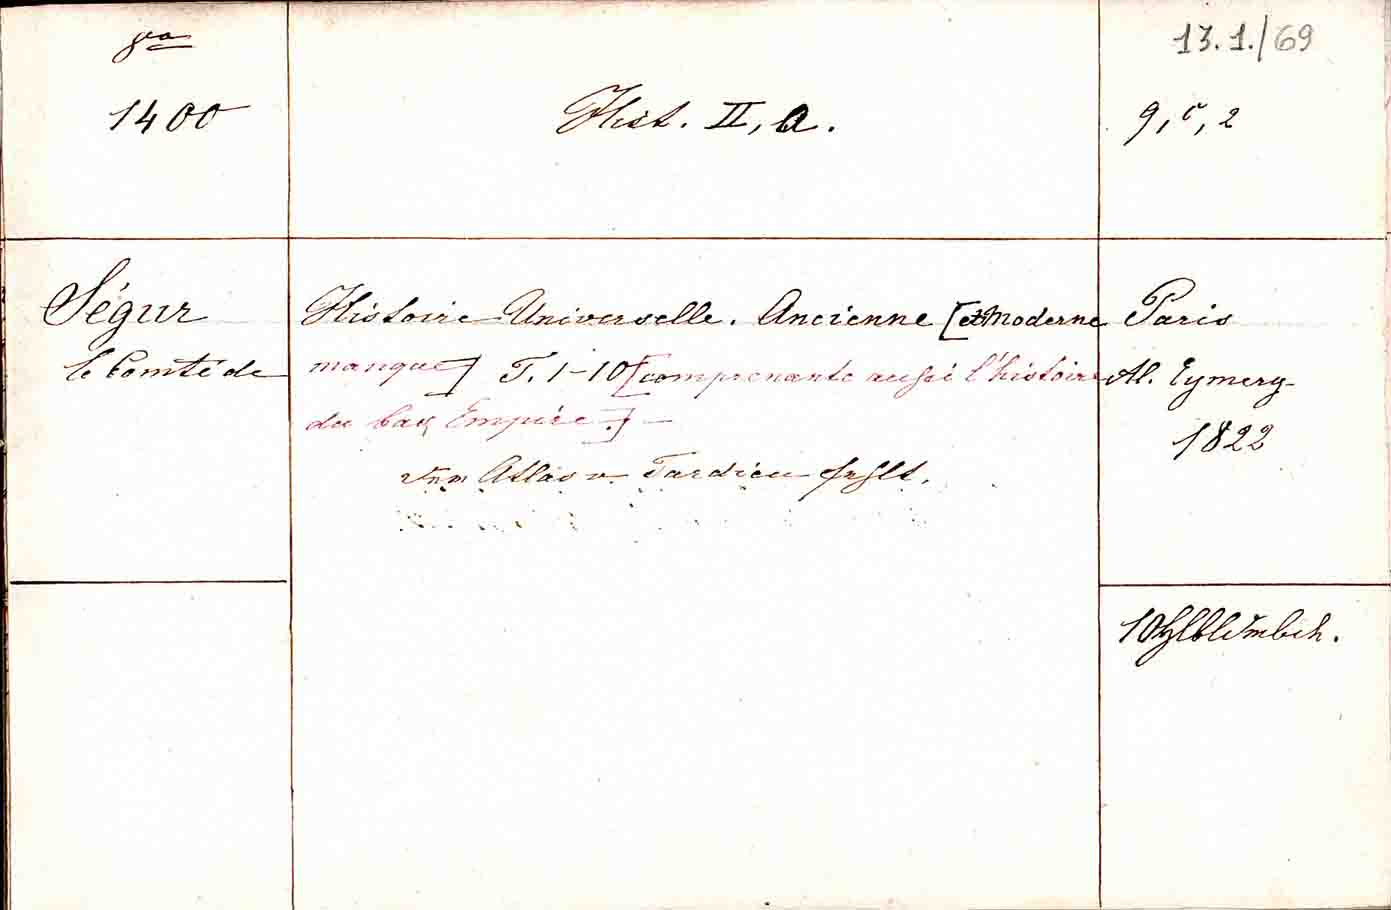 8vo
1400
Hist. II, a.
13.1./69
9, c, 2
Ségur
le Comte de
Histoire Universelle. Ancienne [et Moderne
manque] T. 1-10 [comprenante aussi l'histoire
du bas Empire.] —
Atlas v. Tardieu fehlt.
Paris
Al. Eymery
1822
10 Hlbldrnbde.